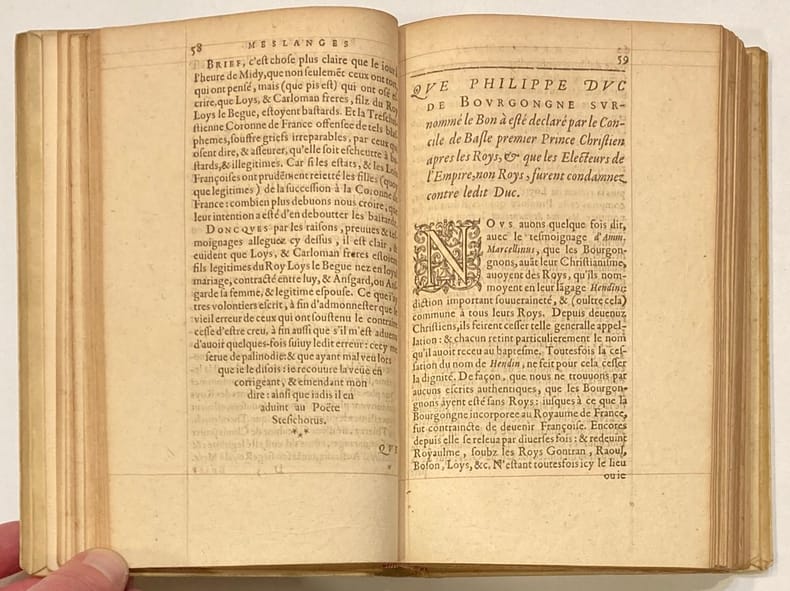 58 MESLANGES
BRIEF, c'est chose plus claire que le iour à
l'heure de Midy, que non seulemẽt ceux ont tort,
qui ont pensé, mais (que pis est) qui ont osé es-
crire, que Loys, & Carloman freres, filz du Roy
Loys le Begue, estoyent bastards. Et la Tréschre-
stienne Coronne de France offensee de tels blas-
phemes, souffre griefs irreparables, par ceux qui
osent dire, & asseurer, qu'elle soit escheutte à ba-
stards, & illegitimes. Car si les estats, & les Loix
Françoises ont prudẽment reietté les filles (quoy
que legitimes) de la succession à la Coronne de
France: combien plus debuons nous croire, que
leur intention a esté d'en deboutter les bastards.
DONCQVES par les raisons, preuues & tes-
moignages alleguez cy dessus, il est clair, &
euident que Loys, & Carloman freres estoient
fils legitimes du Roy Loys le Begue nez en loyal
mariage, contracté entre luy, & Ansgard, ou Ans-
garde sa femme, & legitime espouse. Ce que i'ay
tres volontiers escrit, à fin d'admonnester que le
vieil erreur de ceux qui ont soustenu le contraire
cesse d'estre creu, à fin aussi que s'il m'est aduenu
d'auoir quelques-fois suiuy ledit erreur: cecy me
serue de palinodie: & que ayant mal veu lors
que ie le disois: ie recouure la veuë en
corrigeant, & emendant mon
dire: ainsi que iadis il en
aduint au Poëte
Stesichorus.
***
QVE
59
QVE PHILIPPE DVC
DE BOVRGONGNE SVR-
nommé le Bon à esté declaré par le Con-
cile de Basle premier Prince Christien
apres les Roys, & que les Electeurs de
l'Empire, non Roys, furent condamnez
contre ledit Duc.
NOVS auons quelque fois dit,
auec le tesmoignage d'Amm.
Marcellinus, que les Bourgon-
gnons, auãt leur Christianisme,
auoyent des Roys, qu'ils nom-
moyent en leur lãgage Hendin:
diction important souueraineté, & (oultre cela)
commune à tous leurs Roys. Depuis deuenuz
Christiens, ils feirent cesser telle generalle appel-
lation: & chacun retint particulierement le nom
qu'il auoit receu au baptesme. Toutesfois la ces-
sation du nom de Hendin, ne feit pour cela cesser
la dignité. De façon, que nous ne trouuons par
aucuns escrits authentiques, que les Bourgon-
gnons ayent esté sans Roys: iusques à ce que la
Bourgongne incorporee au Royaume de France,
fut contraincte de deuenir Françoise. Encores
depuis elle se releua par diuerses fois: & redeuint
Royaulme, soubz les Roys Gontran, Raoul,
Boson, Loys, &c. N'estant toutesfois icy le lieu
ou ie